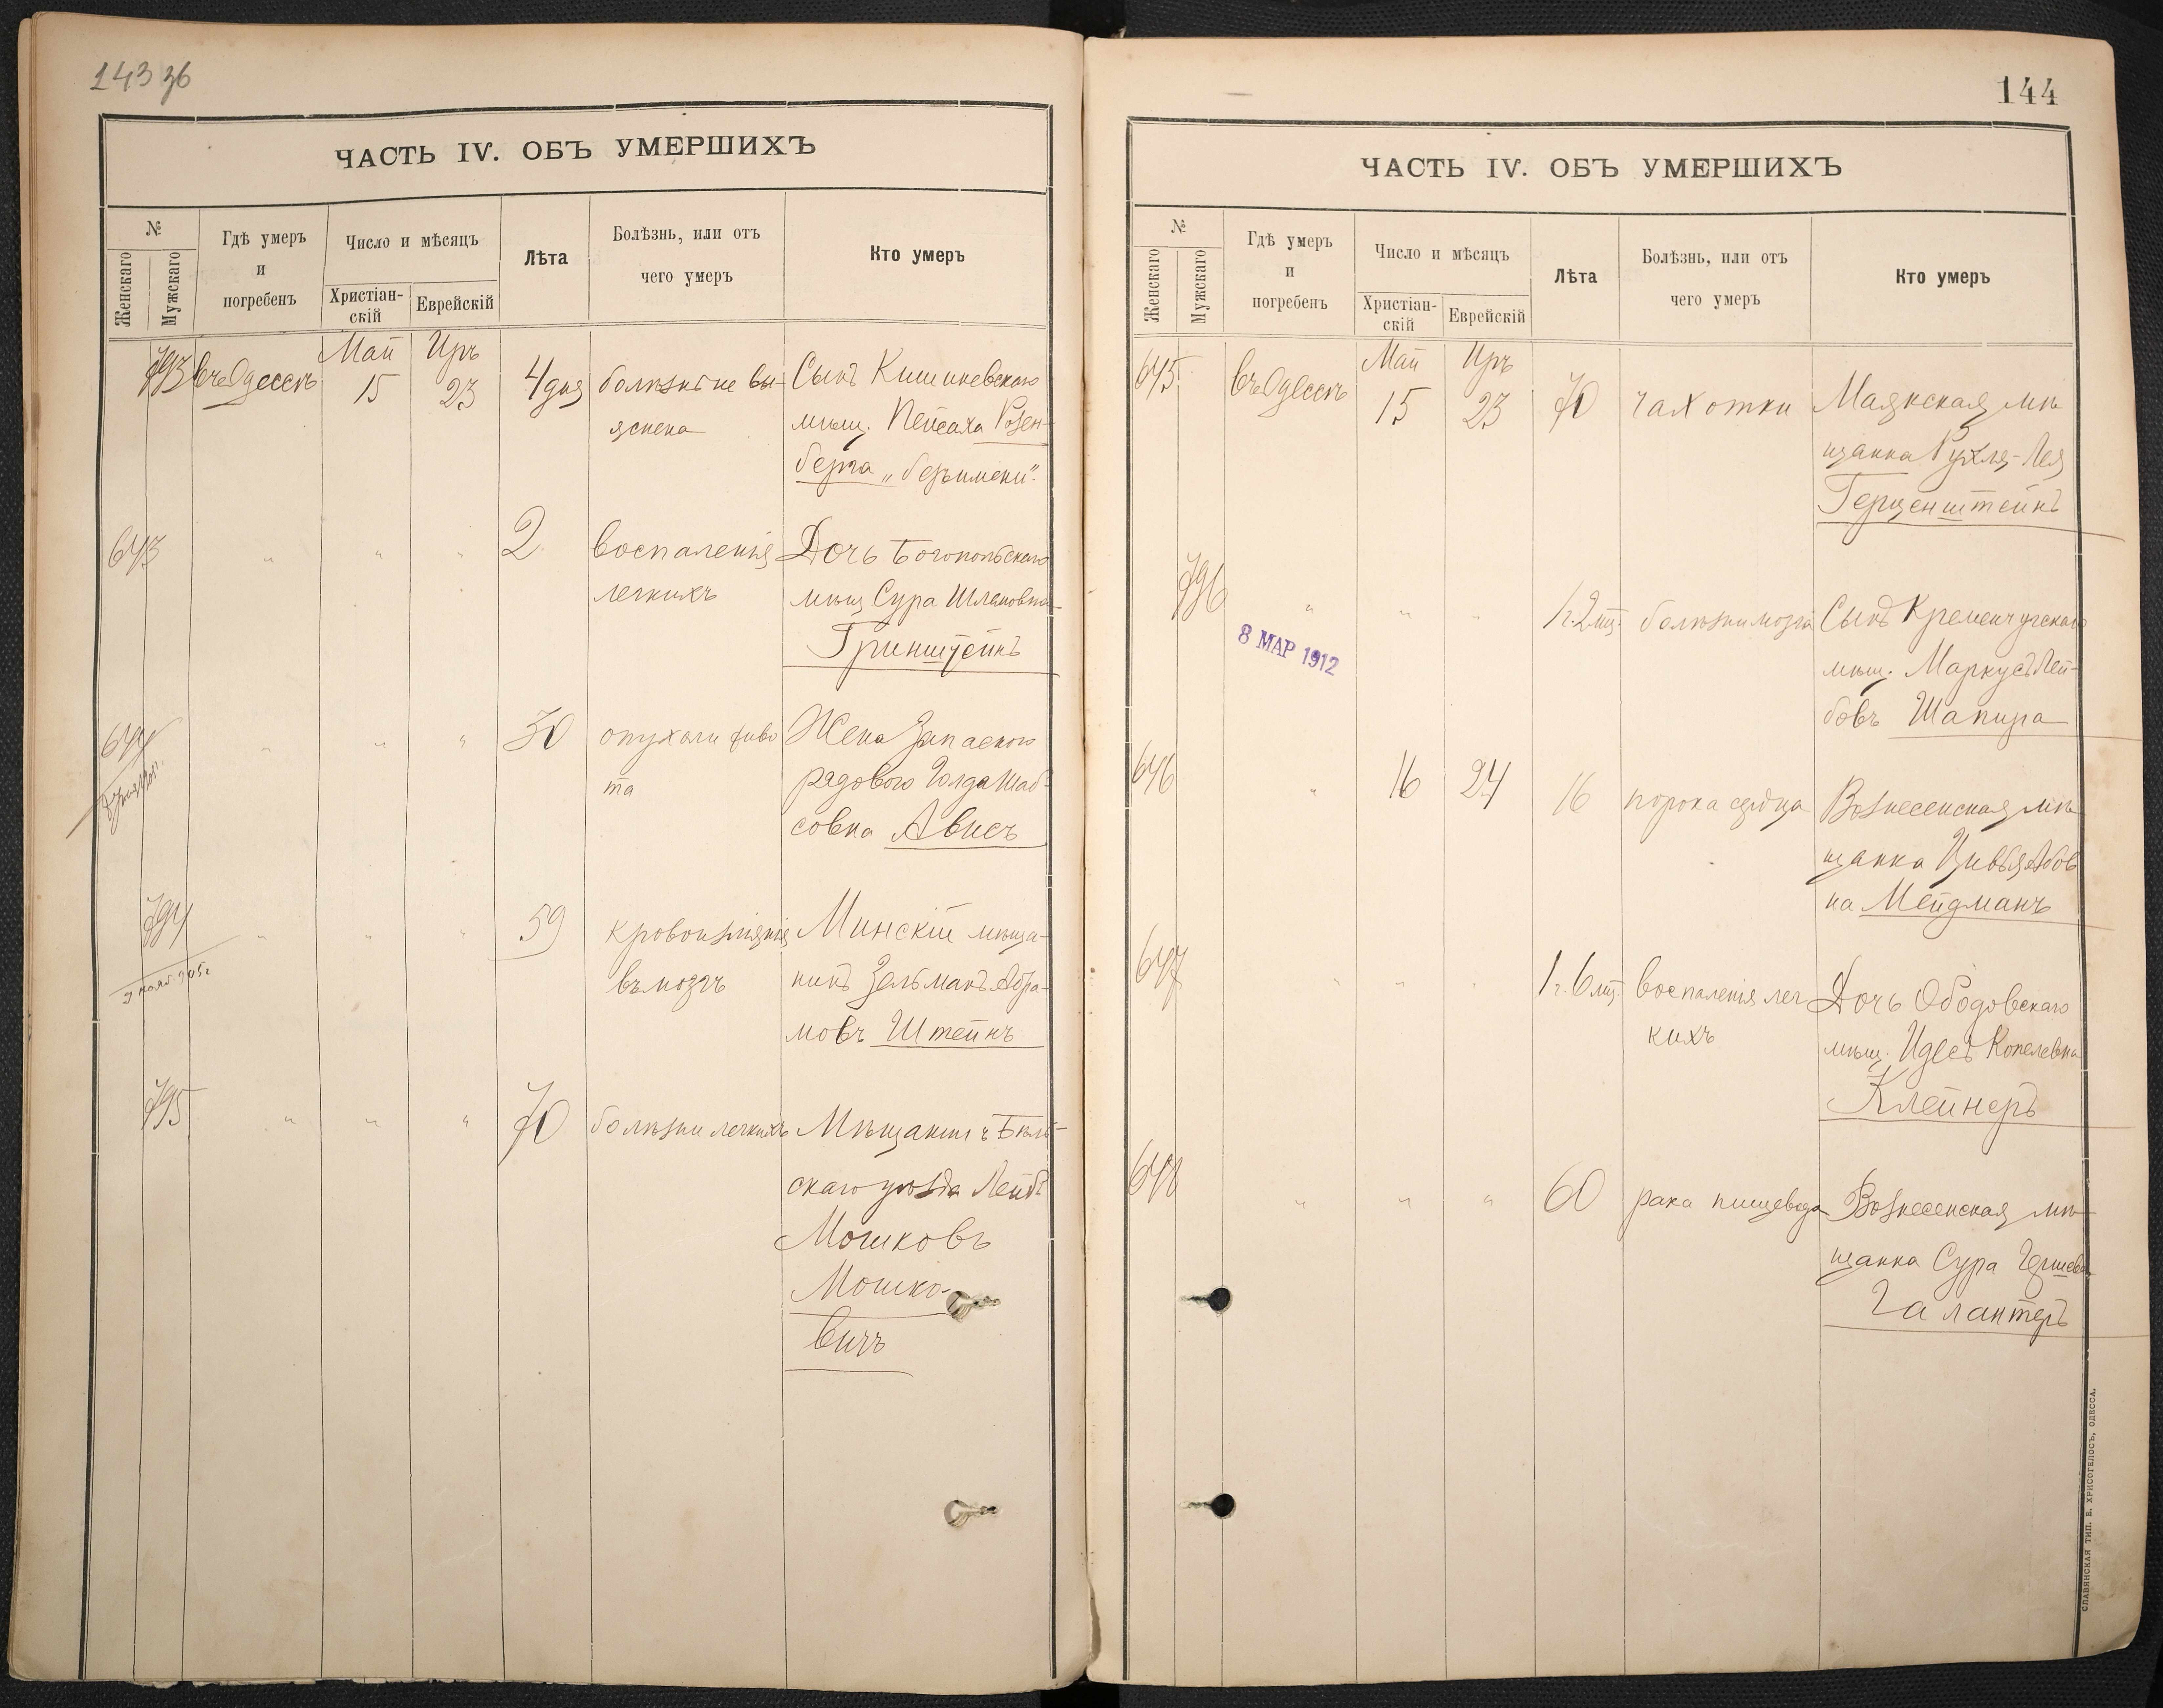 143 зб
ЧАСТЬ IV. ОБЪ УМЕРШИХЪ
№
Женскаго
Мужскаго
Гдѣ умеръ
и
погребенъ
Число и мѣсяцъ
Христіан-
скій
Еврейскій
Лѣта
Болѣзнь, или отъ
чего умеръ
Кто умеръ
Май Иръ
793 въ Одессѣ 15 23 4 дня болѣзнь не вы- Сынъ Кишиневскаго
яснена мѣщ. Пейсаха Розен-
берга „безъ имени".
643 " " " 2 воспаленія Дочь Богопольскаго
легкихъ мѣщ Сура Шлемовна
Гринштейнъ
644 " " " 30 опухоли живо Жена запаснаго
та рядового Голда Шаб-
совна Ависъ
794 " " " 59 кровоизліянія Минскій мѣща-
въ мозгъ нинъ Зельманъ Абра-
9 нояб. 905 г мовъ Штейнъ
795 " " " 70 болѣзни легкихъ Мѣщанинъ Бѣль-
скаго уѣзда Лейбъ
Мошковъ
Мошко-
вичъ
144
ЧАСТЬ IV. ОБЪ УМЕРШИХЪ
№
Женскаго
Мужскаго
Гдѣ умеръ
и
погребенъ
Число и мѣсяцъ
Христіан-
скій
Еврейскій
Лѣта
Болѣзнь, или отъ
чего умеръ
Кто умеръ
Май Иръ
645 въ Одессѣ 15 23 70 чахотки Маякская мѣ
щанка Рухля-Лея
Герценштейнъ
796 " " " 1 г. 2 мѣ. болѣзни мозга Сынъ Кременчугскаго
8 МАР 1912
мѣщ. Маркусъ Лей-
бовъ Шапира
646 " 16 24 16 порока сердца Вознесенская мѣ
щанка Цивья Абов
на Мейдманъ
647 " " " 1 г. 6 мѣ. воспаленія лег Дочь Ободовскаго
кихъ мѣщ. Идесъ Копелевна
Клейнеръ
648 " " " 60 рака пищевода Вознесенская мѣ
щанка Сура Гершева
Галантеръ
СЛАВЯНСКАЯ ТИП. Е. ХРИСОГЕЛОСЪ, ОДЕССА.